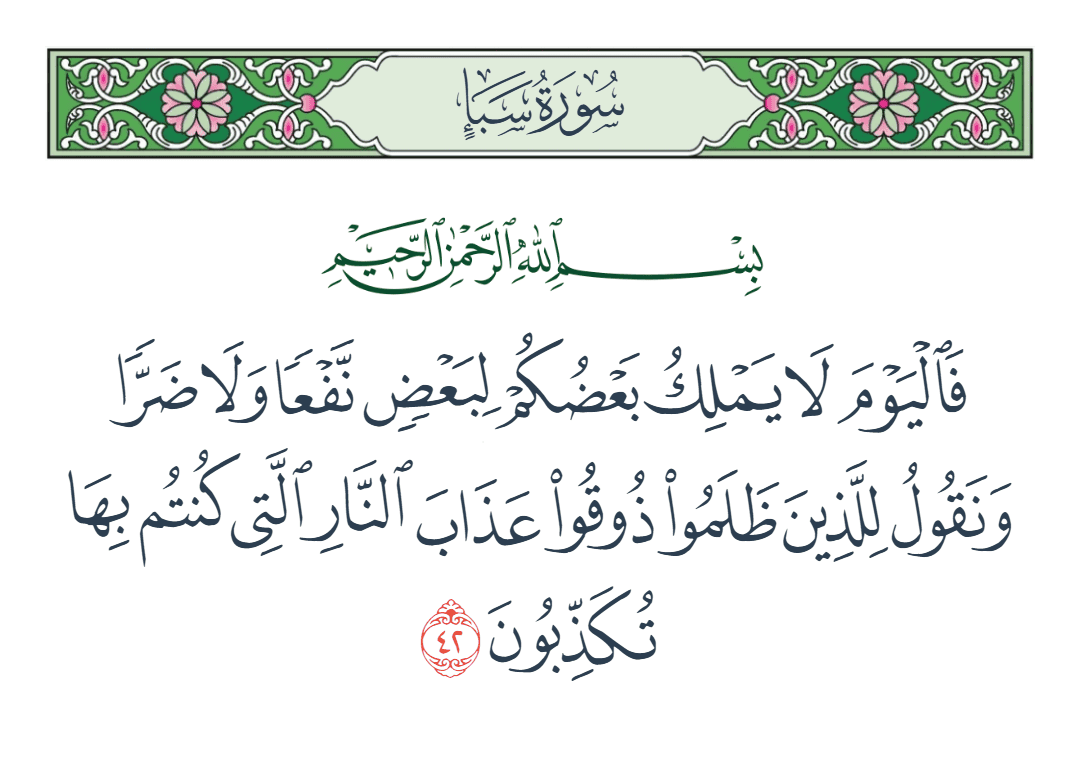 سُورَةُ سَبَإٍ
بِسْمِ ٱللَّهِ ٱلرَّحْمَٰنِ ٱلرَّحِيمِ
فَٱلْيَوْمَ لَا يَمْلِكُ بَعْضُكُمْ لِبَعْضٍ نَّفْعًا وَلَا ضَرًّا
وَنَقُولُ لِلَّذِينَ ظَلَمُوا۟ ذُوقُوا۟ عَذَابَ ٱلنَّارِ ٱلَّتِى كُنتُم بِهَا
تُكَذِّبُونَ ٤٢